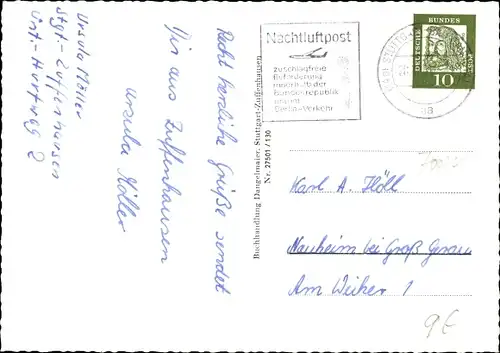 Ursula Möller
Stgt.-Zuffenhausen
Recht herzliche Grüße sendet
Ihnen aus Zuffenhausen
Ursula Möller
Buchhandlung Dangelmaier, Stuttgart-Zuffenhausen
Nr. 27501/130
Nachtluftpost
zuschlagfreie
Beförderung
innerhalb der
Bundesrepublik
und im
Berlin-Verkehr
DEUTSCHE BUNDESPOST
10
Karl A. Höll
Nauheim bei Groß Gerau
Am Weiher 1
9€